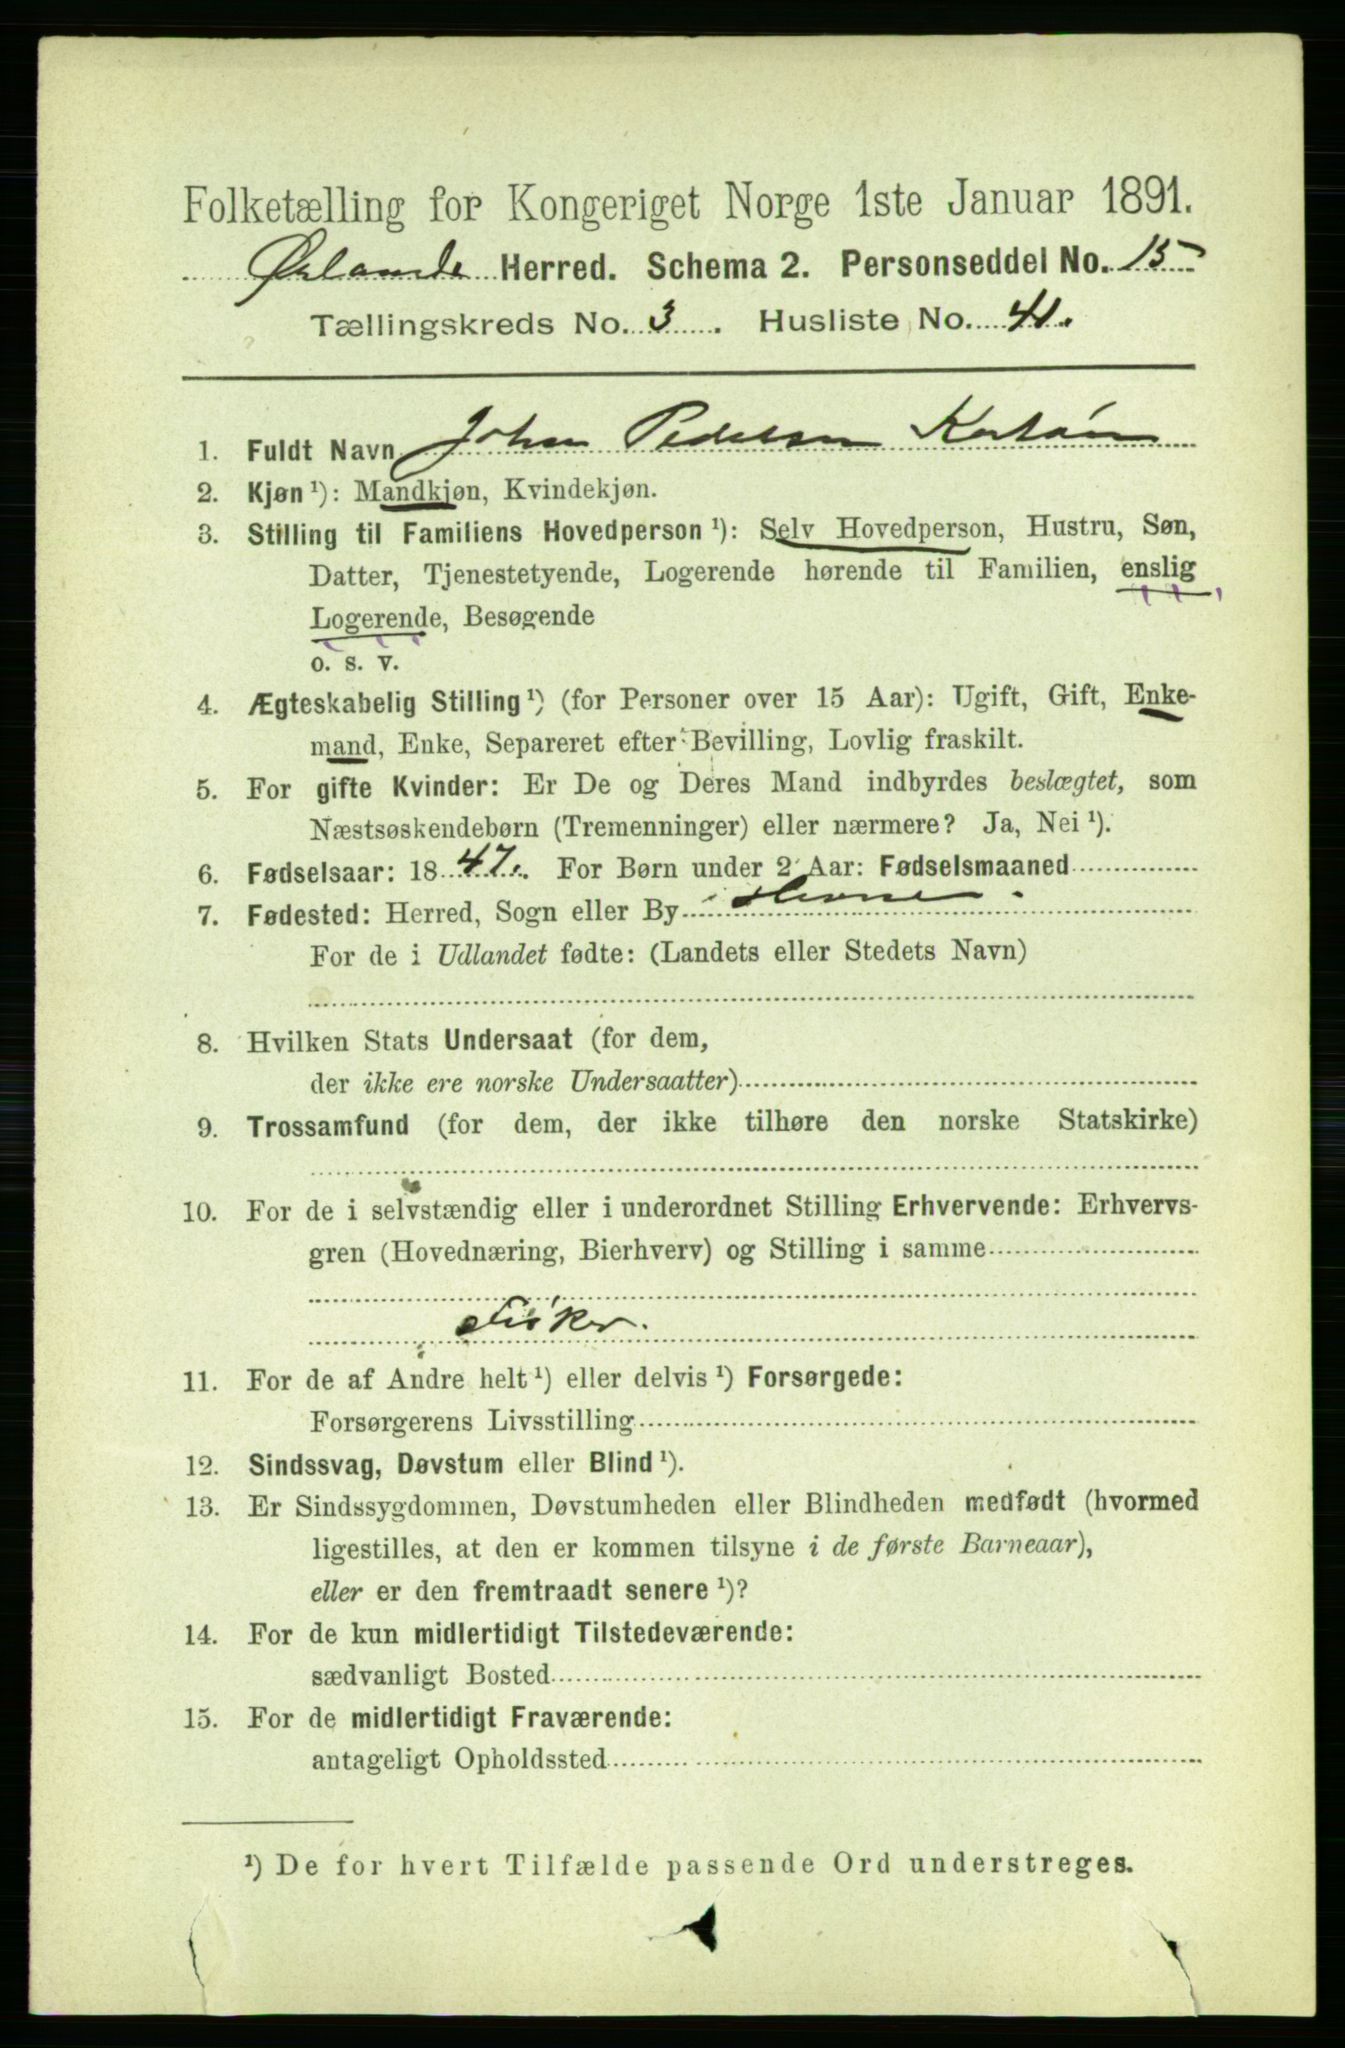 Folketælling for Kongeriget Norge 1ste Januar 1891.
Ørlandet Herred. Schema 2. Personseddel No. 15
Tællingskreds No. 3. Husliste No. 41.
1. Fuldt Navn Johan Pedersen
2. Kjøn ¹): Mandkjøn, Kvindekjøn.
3. Stilling til Familiens Hovedperson ¹): Selv Hovedperson, Hustru, Søn,
Datter, Tjenestetyende, Logerende hørende til Familien, enslig
Logerende, Besøgende
o. s. v.
4. Ægteskabelig Stilling ¹) (for Personer over 15 Aar): Ugift, Gift, Enke-
mand, Enke, Separeret efter Bevilling, Lovlig fraskilt.
5. For gifte Kvinder: Er De og Deres Mand indbyrdes beslægtet, som
Næstsøskendebørn (Tremenninger) eller nærmere? Ja, Nei ¹).
6. Fødselsaar: 1847. For Børn under 2 Aar: Fødselsmaaned
7. Fødested: Herred, Sogn eller By Hevne.
For de i Udlandet fødte: (Landets eller Stedets Navn)
8. Hvilken Stats Undersaat (for dem,
der ikke ere norske Undersaatter)
9. Trossamfund (for dem, der ikke tilhøre den norske Statskirke)
10. For de i selvstændig eller i underordnet Stilling Erhvervende: Erhvervs-
gren (Hovednæring, Bierhverv) og Stilling i samme
Fisker.
11. For de af Andre helt ¹) eller delvis ¹) Forsørgede:
Forsørgerens Livsstilling
12. Sindssvag, Døvstum eller Blind ¹).
13. Er Sindssygdommen, Døvstumheden eller Blindheden medfødt (hvormed
ligestilles, at den er kommen tilsyne i de første Barneaar),
eller er den fremtraadt senere ¹)?
14. For de kun midlertidigt Tilstedeværende:
sædvanligt Bosted
15. For de midlertidigt Fraværende:
antageligt Opholdssted
¹) De for hvert Tilfælde passende Ord understreges.